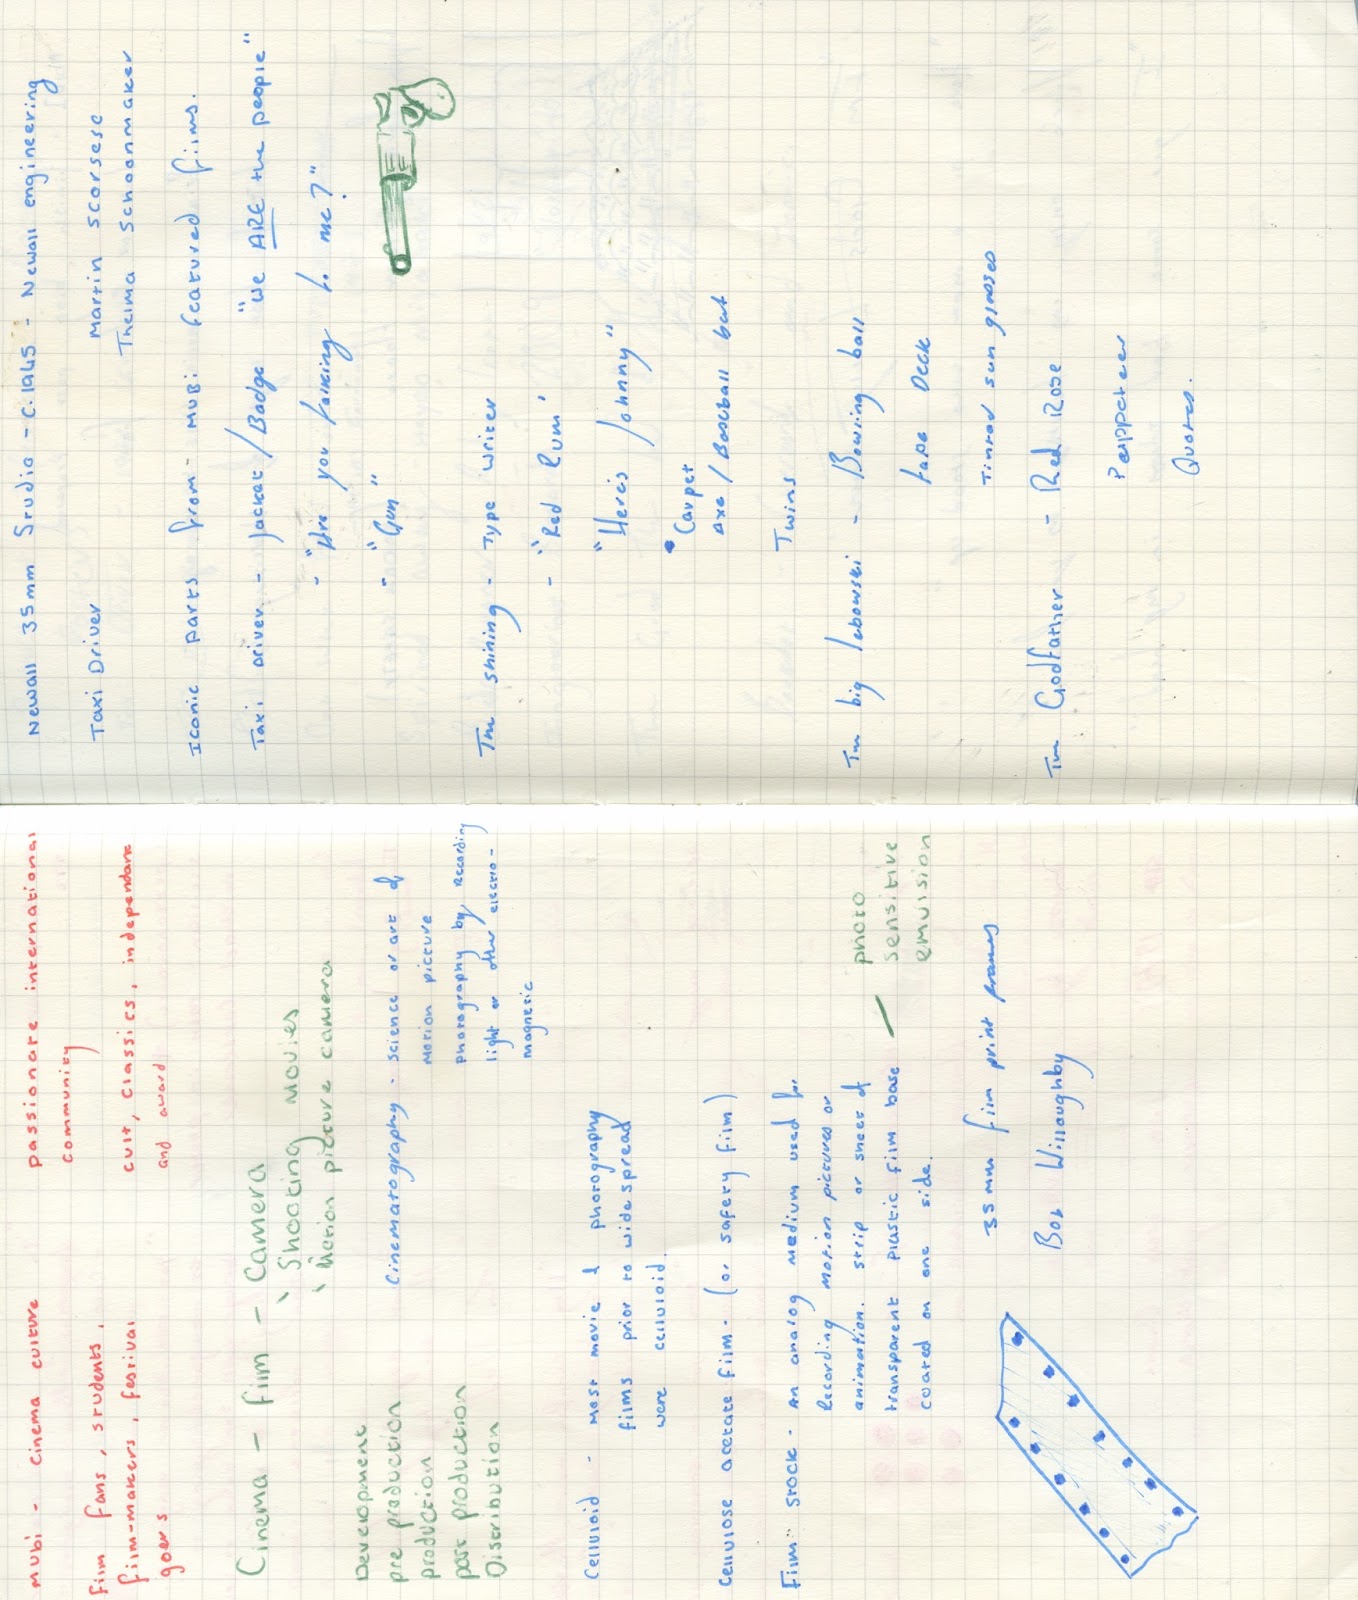 Mubi - cinema culture
film fans, students,
film-makers, festival
goers
passionate international
community
cult, classics, independant
and award
Cinema - film - Camera
' Shooting movies
' Motion picture camera
Development
pre production
production
post production
Distribution
Cinematography - science or art of
motion picture
photography by recording
light or other electro-
magnetic
Celluloid - most movie & photography
films prior to wide spread
were celluloid.
Cellulose acetate film - (or safety film)
Film stock - An analog medium used for
Recording motion pictures or
animation. strip or sheet of
transparent plastic film base
coated on one side.
photo
sensitive
emulsion
35mm film print frames
Bob Willoughby
Newall 35mm Studio - C.1945 - Newall engineering
Taxi Driver
Martin Scorsese
Thelma Schoonmaker
Iconic parts from - MUBI featured films.
Taxi driver - Jacket/Badge "we ARE the people"
- "Are you talking to me?"
- "Gun"
The shining - Type writer
- "Red Rum'
"Here's Johnny"
• Carpet
axe/Baseball bat
Twins
The big lebowski - Bowling ball
tape Deck
Tinted sun glasses
The Godfather - Red Rose
Puppeteer
Quotes.